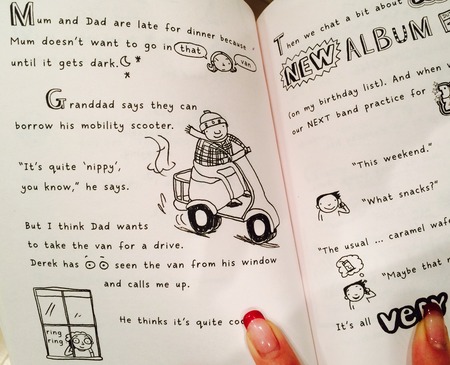 Mum and Dad are late for dinner because
Mum doesn't want to go in that
van
until it gets dark.
Granddad says they can
borrow his mobility scooter.
"It's quite 'nippy',
you know," he says.
But I think Dad wants
to take the van for a drive.
Derek has seen the van from his window
and calls me up.
ring
ring
He thinks it's quite
Then we chat a bit about
NEW ALBUM
(on my birthday list). And when
our NEXT band practice for
"This weekend."
"What snacks?"
"The usual ... caramel
"Maybe that
It's all VERY